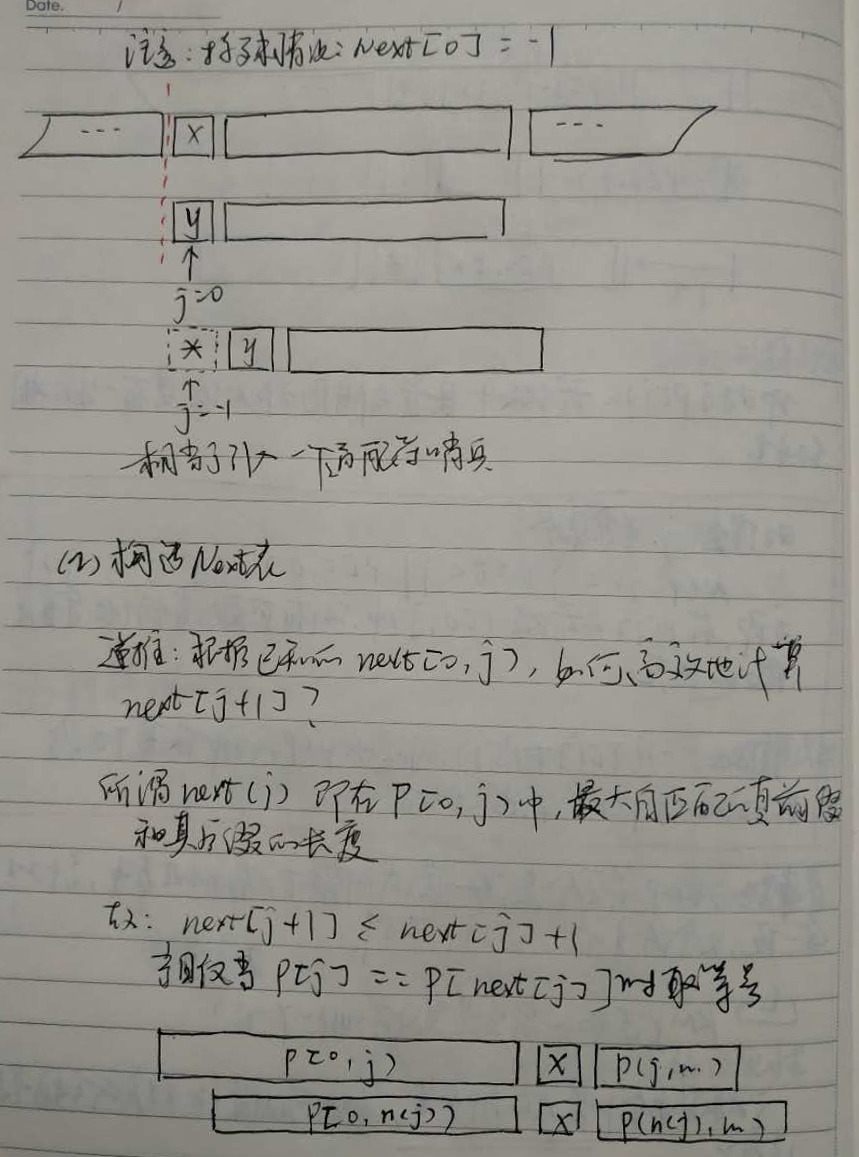 Date. /
注意：将子串情况：Next[0] = -1
--- X ---
y
↑
j=0
* y
↑
j=-1
相当于引入一个通配符哨兵
(2) 构造Next表
递推：根据已知的 next[0, j)，如何高效地计算
next[j+1]？
所谓next(j) 即在P[0, j)中，最大自匹配的真前缀
和真后缀的长度
故：next[j+1] ≤ next[j]+1
当且仅当 P[j] == P[next[j]]时取等号
P[0, j) X P(j, m)
P[0, n(j)) X P(n(j), m)